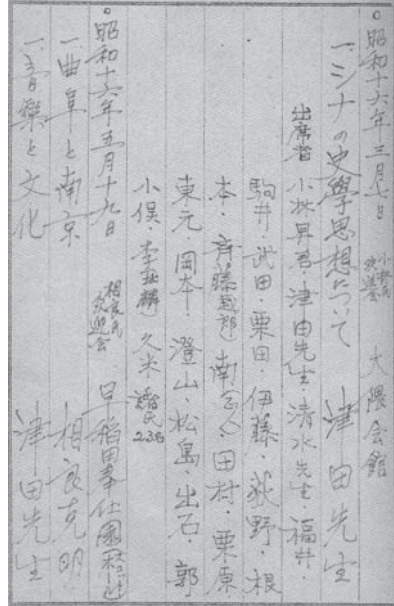 ○昭和十六年三月七日 小林氏歓送会 大隈会館
一、シナの史學思想について 津田先生
出席者 小林昇君・津田先生・清水先生・福井・
駒井・武田・栗田・伊藤・荻野・根
本・斉藤・南・田村・栗原
東元・岡本・澄山・松島・出石・郭
小俣・李・久米
○昭和十六年五月十九日 相良氏歓迎会 早稲田奉仕園
一、曲阜と南京 相良克明
一、音樂と文化 津田先生